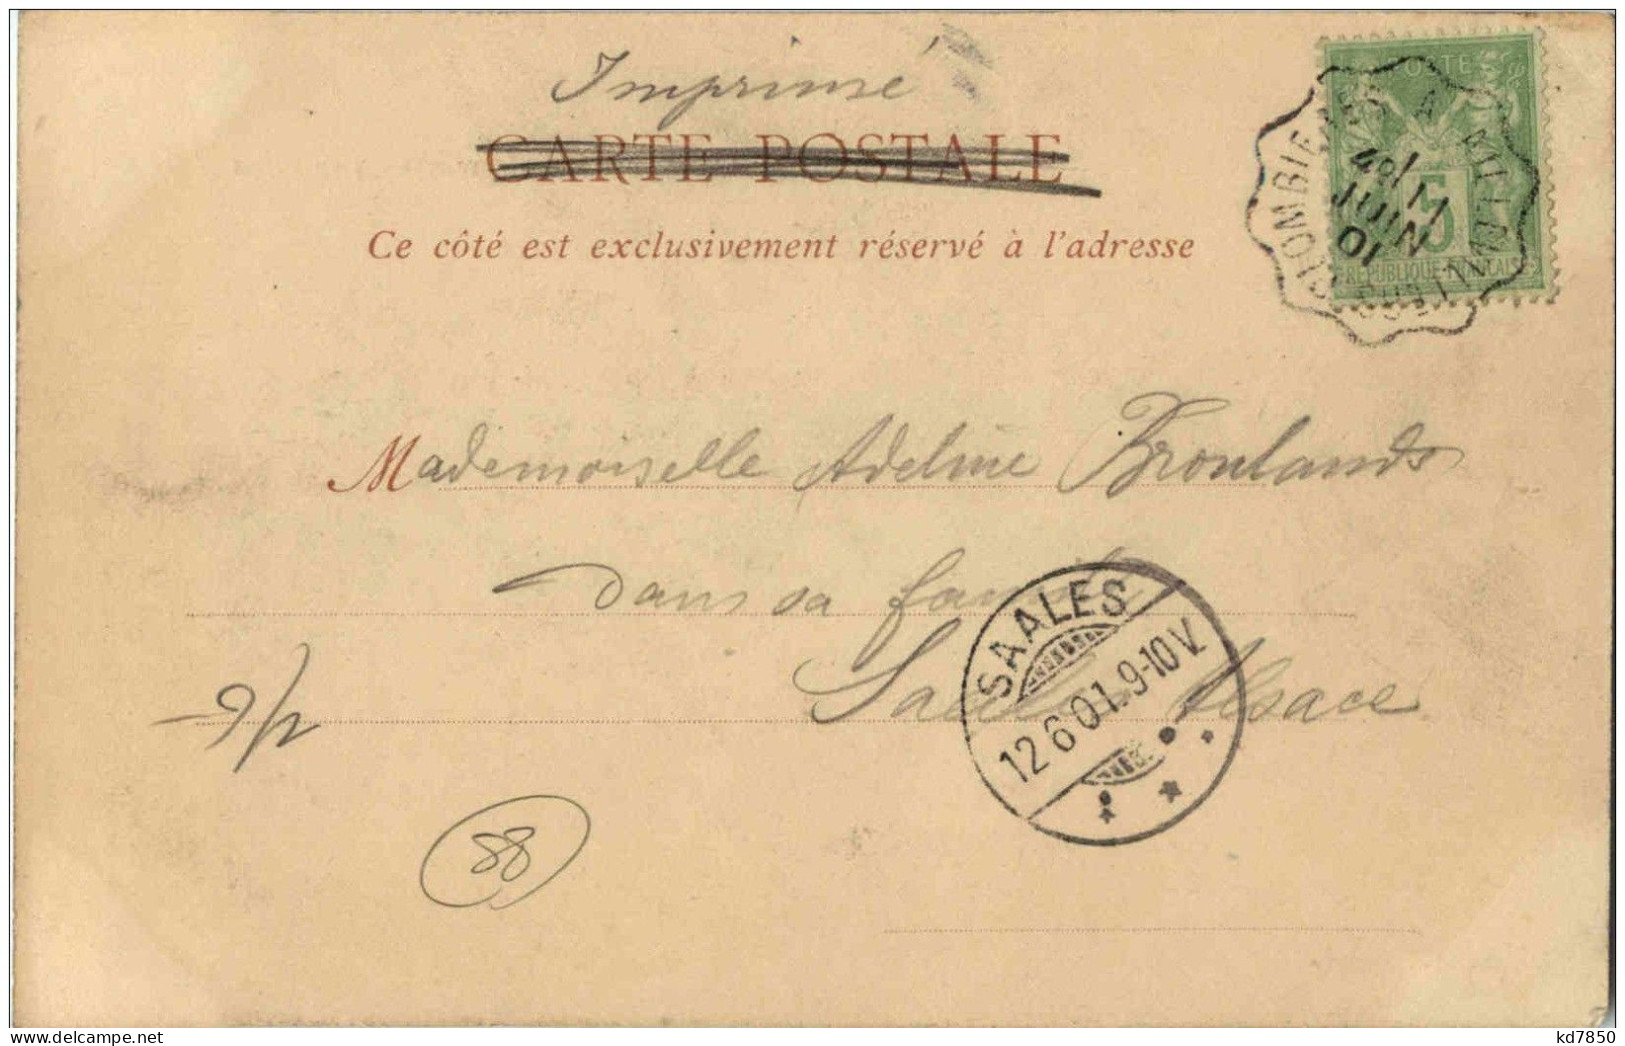 Imprimé
CARTE POSTALE
Ce côté est exclusivement réservé à l'adresse
POSTE
5
RÉPUBLIQUE FRANÇAISE
11
JUIN
01
Mademoiselle Adeline
dans sa famille
Alsace
SAALES
12.6.01.9-10V.
88
kd7850